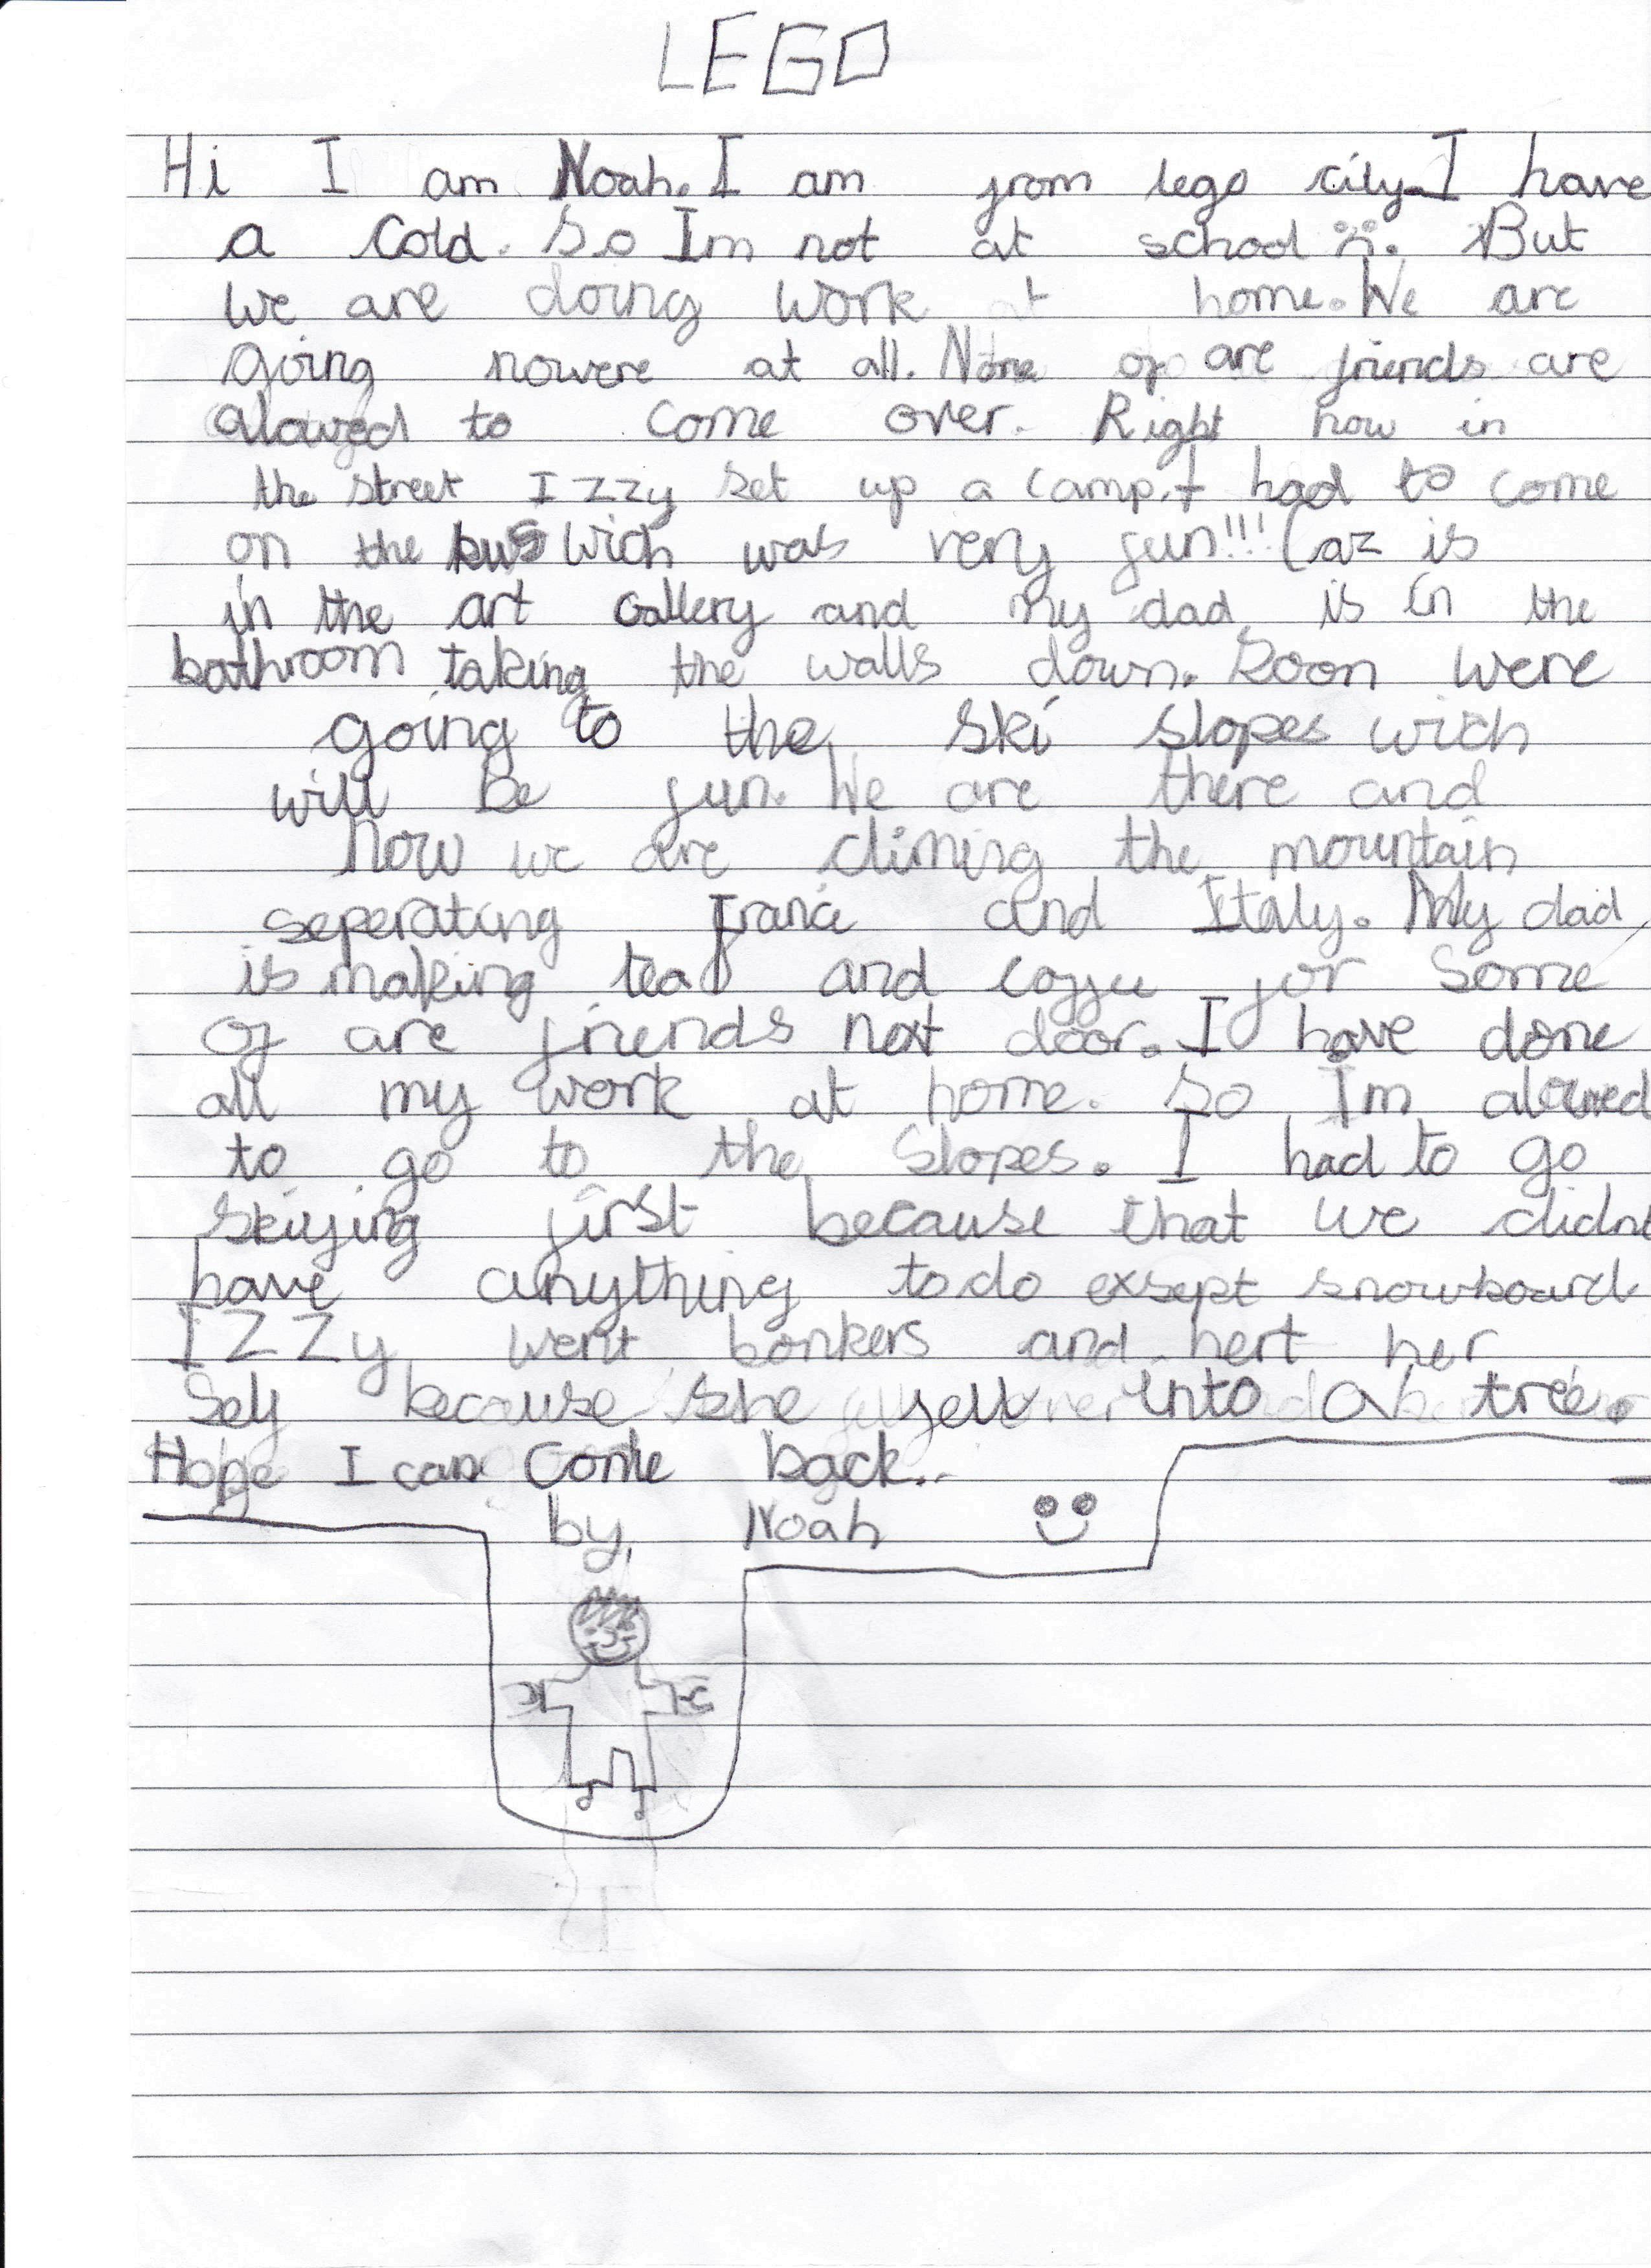 LEGO
Hi I am Noah. I am from lego city. I have
a cold. So Im not at school :(. But
we are doing work at home. We are
going nowere at all. None of are friends are
alowed to come over. Right now in
the street Izzy set up a camp. I had to come
on the bus wich was very fun!!! Caz is
in the art Gallery and my dad is in the
bathroom taking the walls down. Soon were
going to the ski slopes wich
will be fun. We are there and
Now we are climing the mountain
seperating France and Italy. My dad
is making tea and coffee for some
of are friends next door. I have done
all my work at home. So Im alowed
to go to the slopes. I had to go
skiying first because that we didnt
have anything to do exsept snowboard
Izzy went bonkers and hert her
self because she fell into a tree.
Hope I can come back..
by, Noah